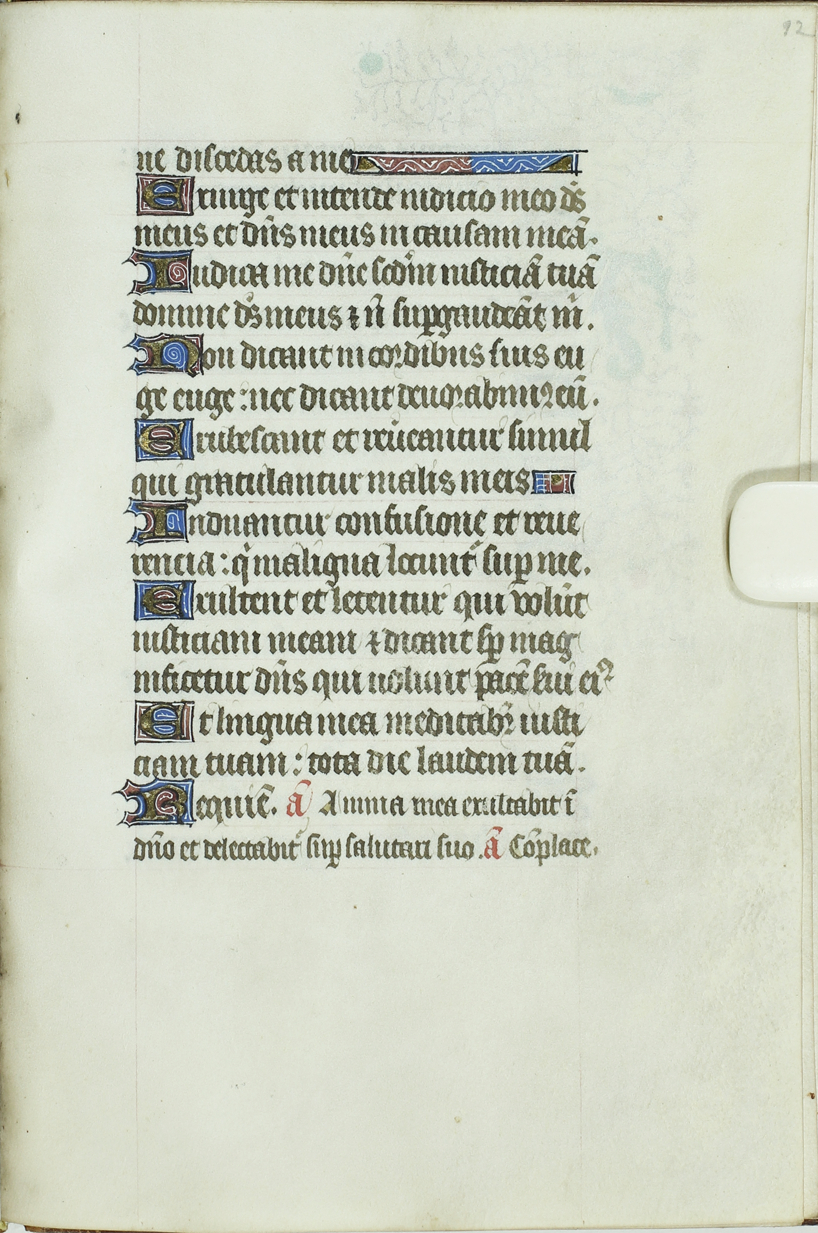 92
ne discedas a me
Exurge et intende iudicio meo ds̄
meus et dn̄s meus in causam meā.
Iudica me dn̄e scd̄m iusticiā tuā
domine ds̄ meus ⁊ n̄ sup̄gaudeāt m̄.
Non dicant in cordibus suis eu
ge euge : nec dicant deuorabimꝰ eū.
Erubescant et reūeantur simul
qui gratulantur malis meis
Induantur confusione et reue
rencia : q̄ maligna locunt᷑ sup̄ me.
Exultent et letentur qui volūt
iusticiam meam ⁊ dicant sp̄ mag
nificetur dn̄s qui uolunt pacē sui eiꝰ
Et lingua mea meditabr̄ iusti
ciam tuam : tota die laudem tuā.
Requiē. ā Anima mea exultabit ī
dn̄o et delectabit᷑ sup̄ salutari suo. ā Cōplace.